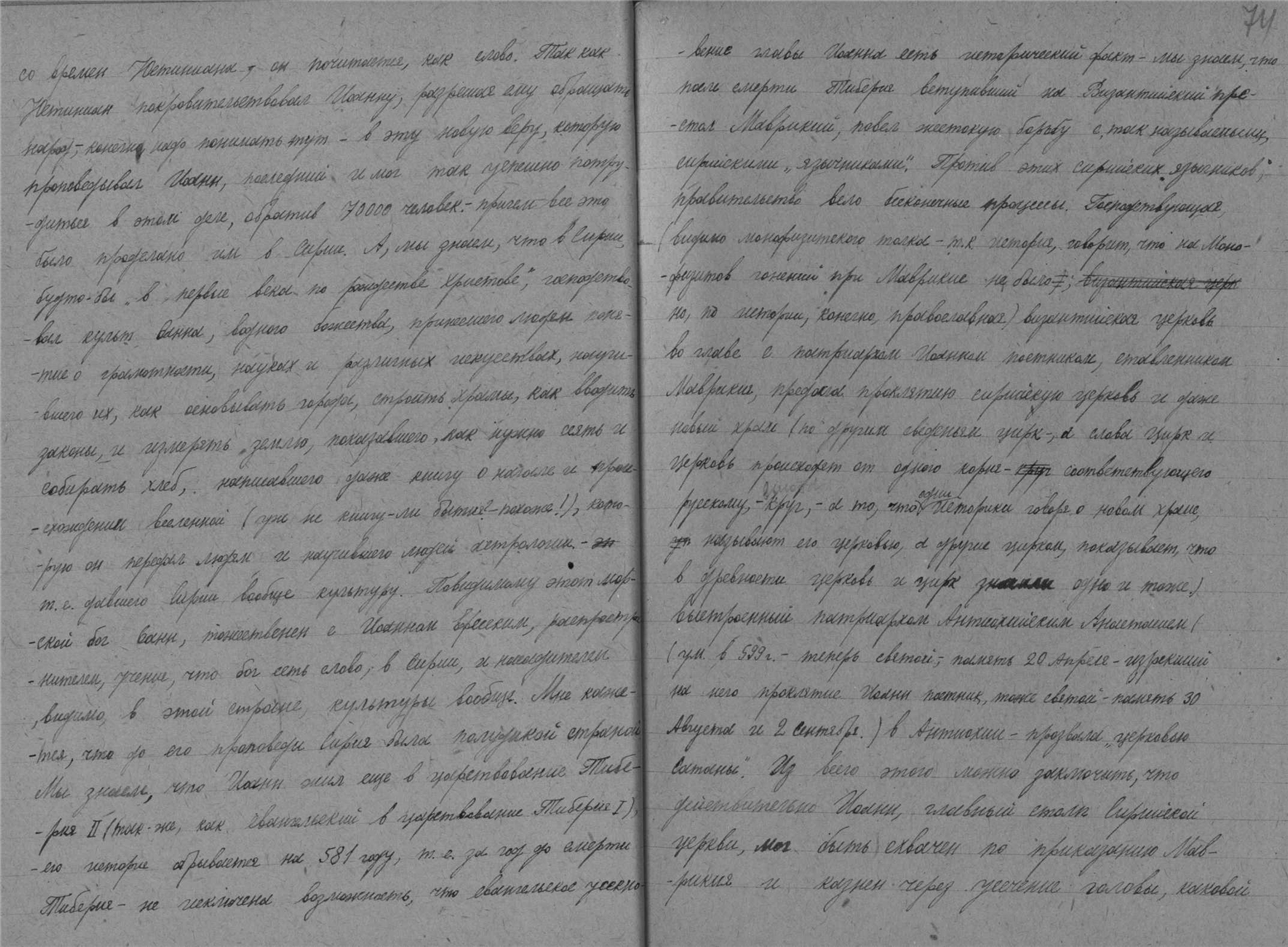 со времен Юстиниана, он почитается, как слово. Так как
Юстиниан покровительствовал Иоанну, разрешая ему обращать
народ, - конечно надо понимать тут - в эту новую веру, которую
проповедывал Иоанн, последний и мог так успешно потру-
-диться в этом деле, обратив 70000 человек. - причем все это
было проделано им в Сирии. А, мы знаем, что в Сирии,
будто-бы в "первые века по рождестве Христове", господство-
-вал культ Оанна, водного божества, принесшего людям поня-
-тие о грамотности, науках и различных искусствах, научи-
-вшего их, как основывать города, строить храмы, как вводить
законы, и измерять землю, показавшего, как нужно сеять и
собирать хлеб, написавшего даже книгу о начале и прои-
-схождении вселенной (уж не книгу-ли бытия?- похоже!), кото-
-рую он передал людям и научившего людей астрологии. -
т. е. давшего Сирии вообще культуру. Повидимому этот мор-
-ской бог Оанн, тожественен с Иоанном Ефесским, распростра-
-нителем, учения, что бог есть слово, в Сирии, и насадителем
, видимо, в этой стране, культуры вообще. Мне каже-
-тся, что до его проповеди Сирия была полудикой страной
Мы знаем, что Иоанн жил еще в царствование Тибе-
-рия II (так-же, как евангельский в царствование Тиберия I),
-его история обрывается на 581 году, т. е. за год до смерти
Тиберия - не исключена возможность, что евангельское усекно-
74
-вение главы Иоанна есть исторический факт - мы знаем, что
после смерти Тиберия вступивший на Византийский пре-
-стол Маврикий, повел жестокую борьбу с, так называемыми,
сирийскими "язычниками". Против этих сирийских "язычников",
правительство вело бесконечные процессы. Господствующая,
(видимо монофизитского толка - т.к история, говорит, что на Моно-
-физитов гонений при Маврикие не было I; византийская церк
но, по истории, конечно, православная) византийская церковь
во главе с патриархом Иоанном постником, ставленником
Маврикия, предала проклятию сирийскую церковь и даже
новый храм (по другим сведеньям цирк-, а слова цирк и
церковь происходят от одного корня - соответствующего
русскому, - круг, - а то, что одни историки говоря о новом храме,
называют его церковью, а другие цирком, показывает, что
в древности церковь и цирк значили одно и тоже.)
выстроенный патриархом Антиохийским Анастасием (
(ум в 599 г. - теперь святой, - память 20 Апреля - изрекший
на него проклятие Иоанн постник, тоже святой - память 30
Августа и 2 сентября.) в Антиохии - прозвала "церковью
сатаны". Из всего этого можно заключить, что
действительно Иоанн, главный столп Сирийской
церкви, мог быть схвачен по приказанию Мав-
-рикия и казнен через усечение головы, каковой